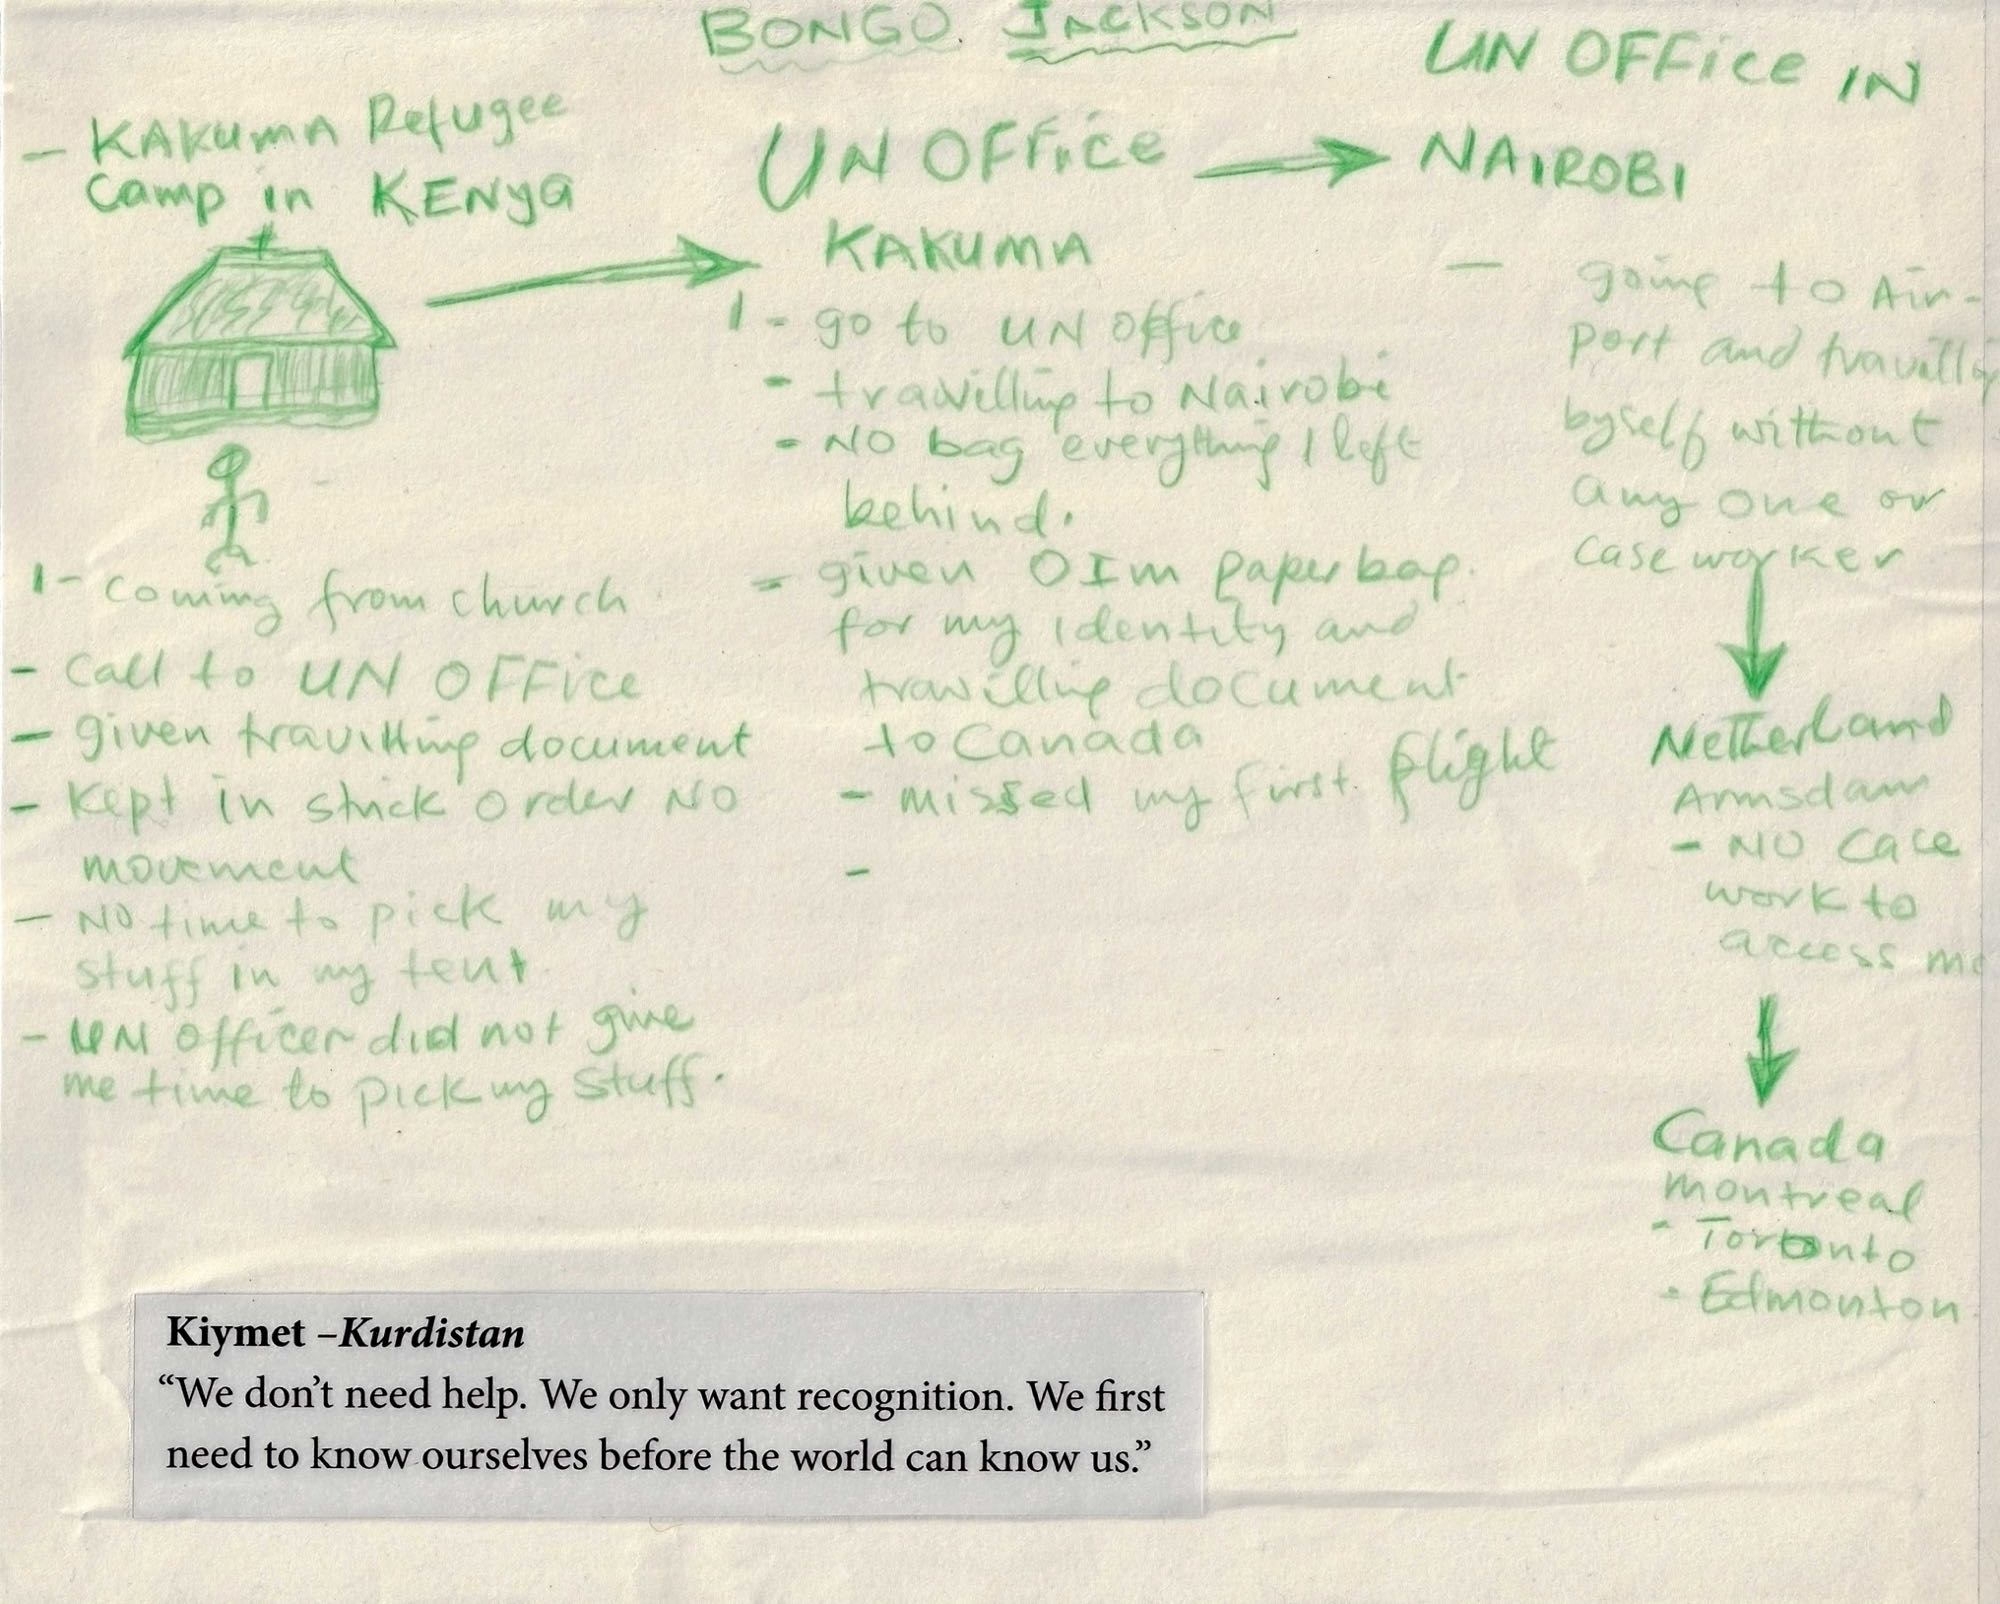 BONGO JACKSON
- KAKUMA Refugee
Camp in KENYA
1- Coming from church
- Call to UN OFFice
- given travilling document
- Kept in strick order NO
movement
- NO time to pick my
stuff in my tent
- UN officer did not give
me time to pick my stuff.
UN OFFice
KAKUMA
1- go to UN office
- travilling to Nairobi
- NO bag everything I left
behind.
- given OIM paper bag.
for my identity and
travilling document
to Canada
- missed my first flight
-
UN OFFice IN
NAIROBI
- going to Air-
port and travilling
byself without
any one or
case worker
Netherland
Amsdam
- NO case
work to
access me
Canada
montreal
- Toronto
- Edmonton
Kiymet –Kurdistan
“We don’t need help. We only want recognition. We first
need to know ourselves before the world can know us.”